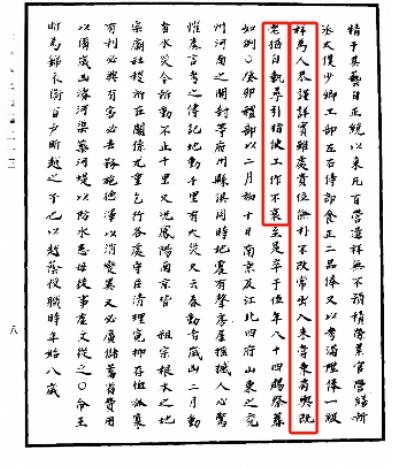 精于其藝自正統以来凡百營造祥無不預積勞累官營繕所
丞太僕少卿工部左右侍郎食正二品俸又以考滿陞俸一級
祥為人恭謹詳實雖處貴位儉朴不改常出入未嘗乗肩輿既
老猶自執尋引指使工作不衰至是卒于位年八十四賜祭葬
如例○癸卯禮部以二月初十日南京及江北四府山東之兖
州河南之開封等府州縣俱同時地震有聲房屋搖撼人心驚
惶言考之傳記地動千里有大災又云春動者歲凶二月動
者水災今所動不止千里又況鳳陽南京皆 祖宗根本之地
宗廟社稷所在關係尤重乞行各處守臣清理冤抑存恤孤寡
有利必興有害必去務施德澤以消變異又必廣儲蓄省費用
以備歲凶濬河渠築河堤以防水患毋徒事虛文從之○命王
昕為錦衣衛百户昕越之子也以越蔭授職時年始八歲
八